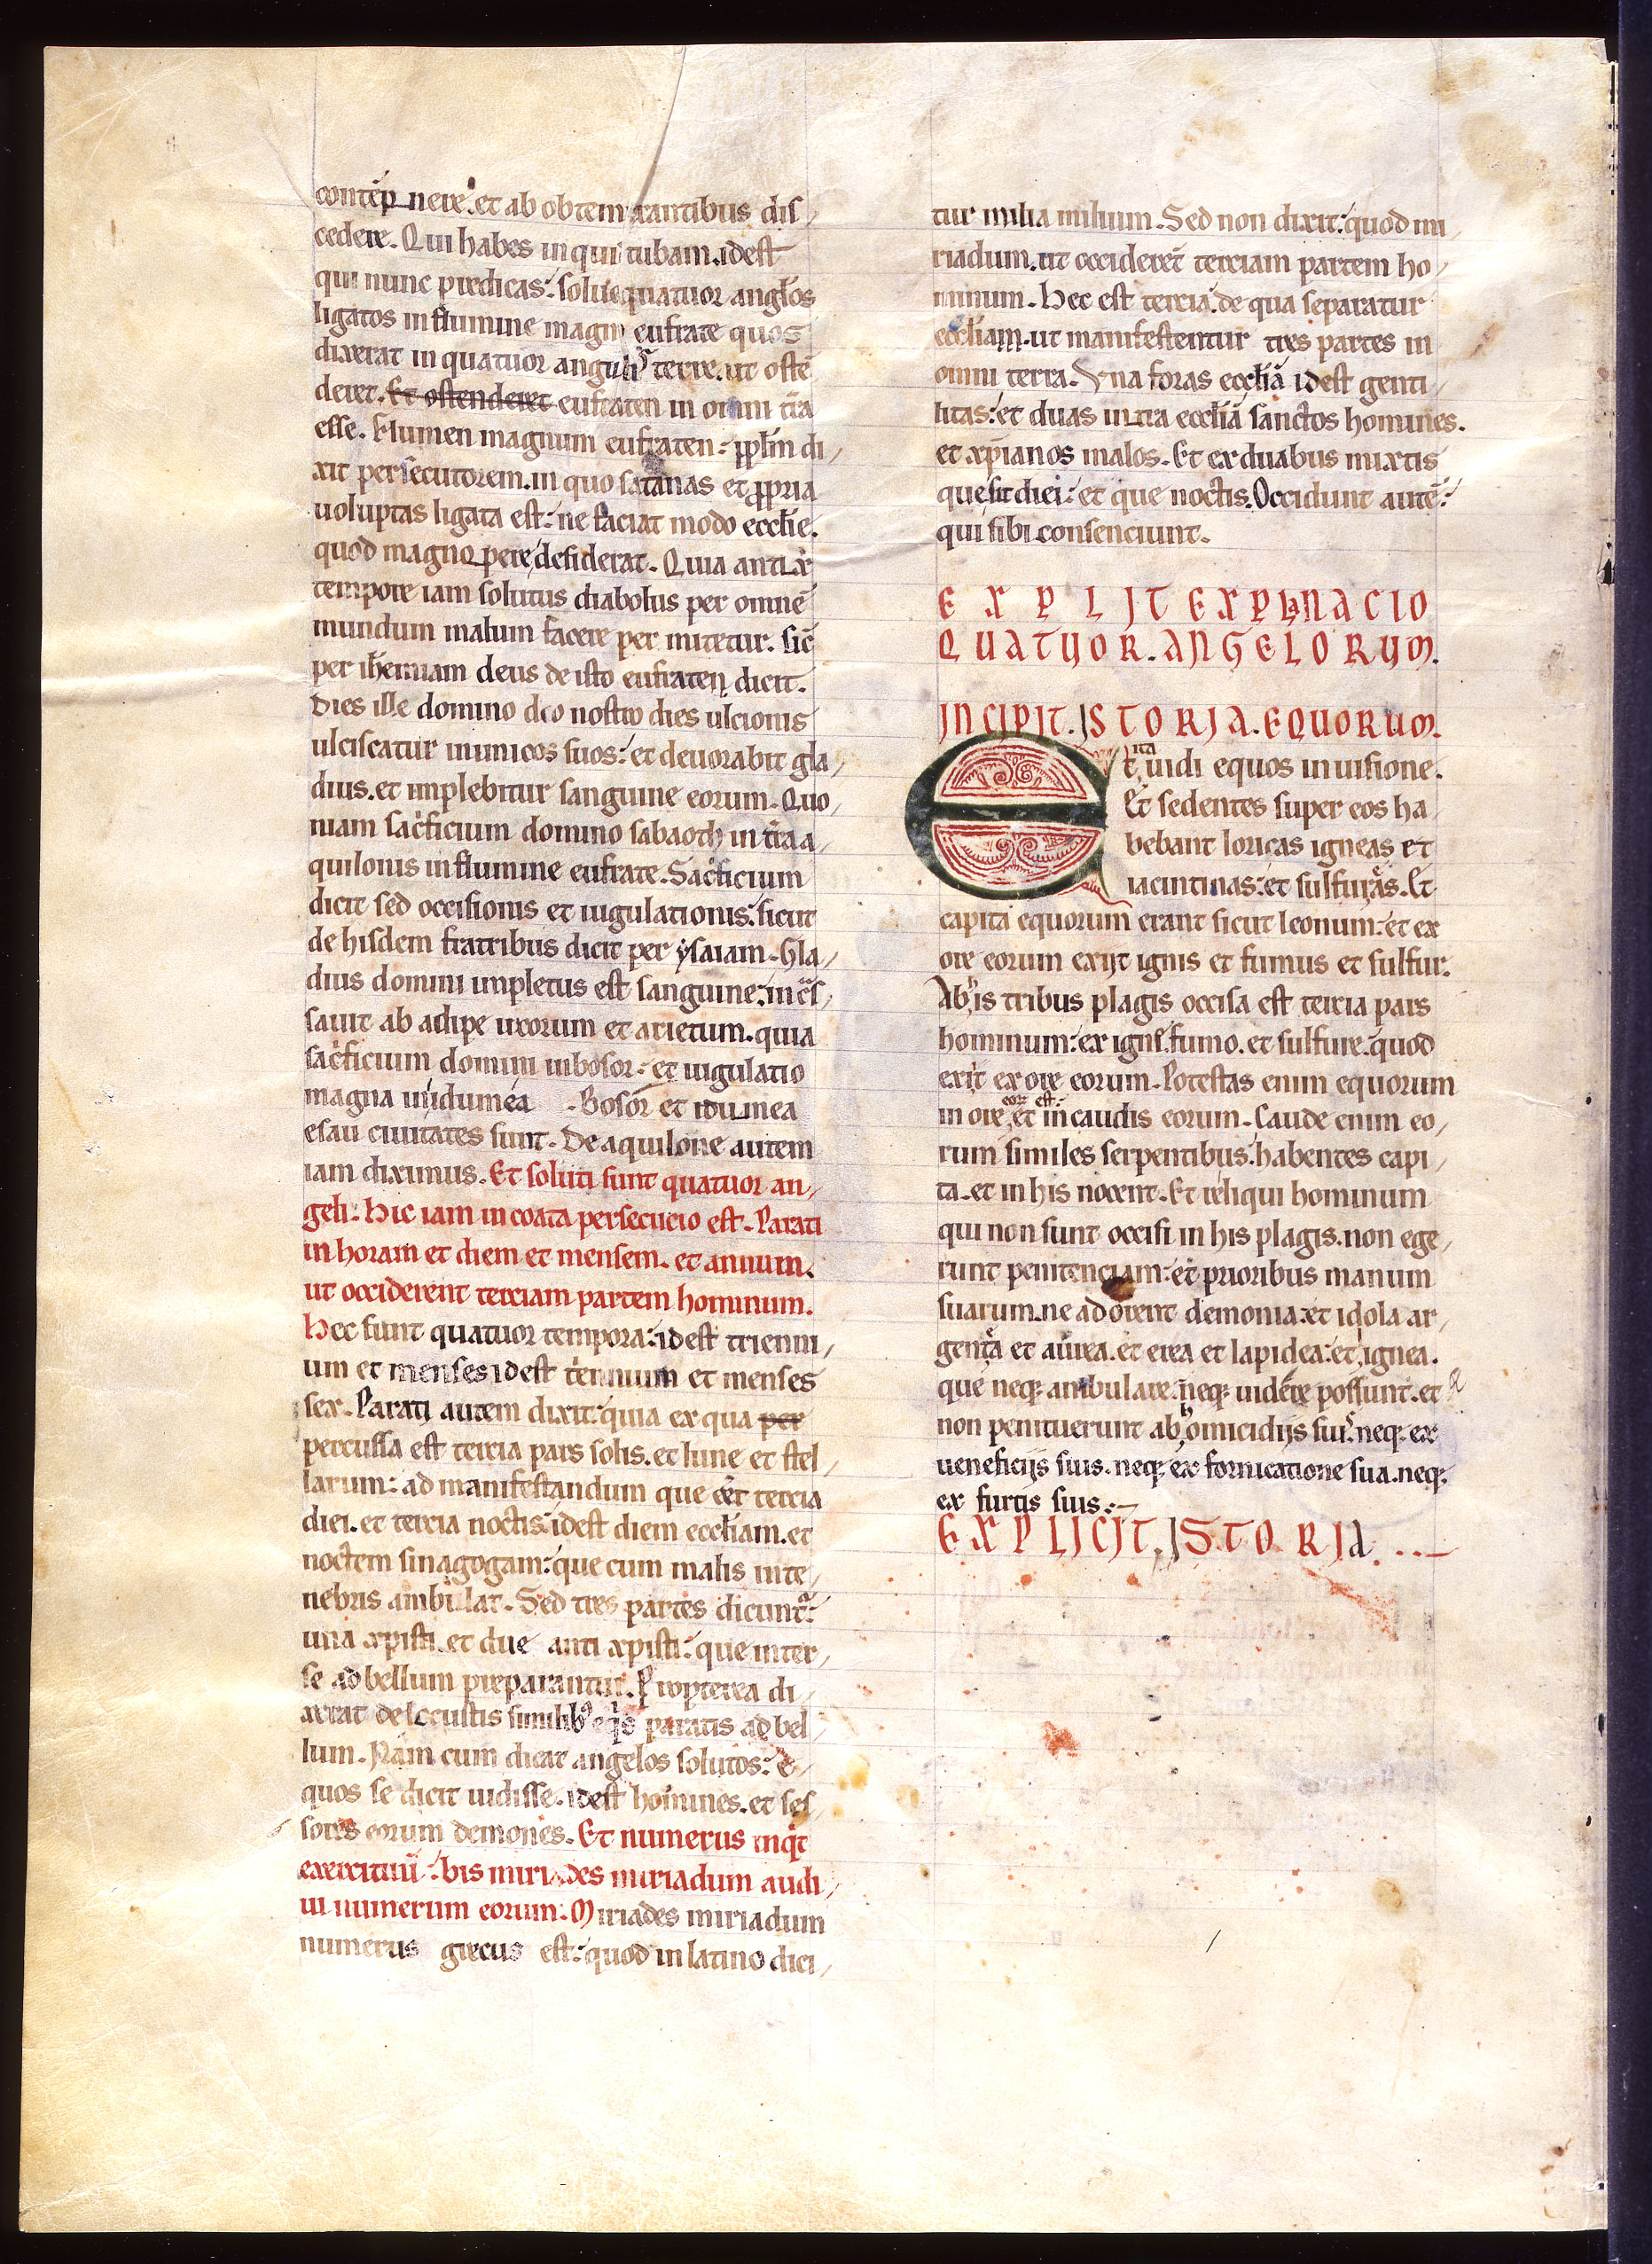 contēp nere. et ab obtemperantibus dis
cedere. Qui habes inquit tubam. id est
qui nunc predicas: solue quatuor angl̄os
ligatos in flumine magno eufrate quos
dixerat in quatuor angulis terre. ut ostē
deret. Et ostenderet eufraten in omni t̄ra
esse. Flumen magnum eufraten: pp̄lm di
xit persecutorem. in quo satanas et ꝓpria
uoluptas ligata est: ne faciat modo eccl̄ie.
quod magnopere desiderat. Quia antix̄
tempore iam solutus diabolus per omnē
mundum malum facere per mitetur. sic̄
per ih̄eremiam deus de isto eufraten dicit.
Dies ille domino deo nostro dies ulcionis
ulciscatur inimicos suos: et deuorabit gla
dius. et implebitur sanguine eorum. Quo
niam sacͥficium domino sabaoth in t̄ra a
quilonis in flumine eufrate. Sacͥficium
dicit sed occisionis et iugulationis. sicut
de hisdem fratribus dicit per ysaiam. Gla
dius domini impletus est sanguine: incͣs
sauit ab adipe uxorum et arietum. quia
sacͥficium domini in bosor: et iugulatio
magna in idumea. Bosor et idumea
esau ciuitates sunt. De aquilone autem
iam diximus. Et soluti sunt quatuor an
geli. Hic iam incoata persecucio est. Parati
in horam et diem et mensem. et annum.
ut occiderent terciam partem hominum.
Hec sunt quatuor tempora: id est trienni
um et menses id est tͥennium et menses
sex. Parati autem dixit: quia ex qua per
percussa est tercia pars solis. et lune et stel
larum: ad manifestandum que eēt tercia
diei. et tercia noctis. id est diem eccl̄iam. et
noctem sinagogam: que cum malis in te
nebris ambulat. Sed tres partes dicunt̄:
una xpisti. et due anti xpisti: que inter
se ad bellum preparantur. Propterea di
xerat de locustis similibꝰ eqͥs paratis ad bel
lum. Nam cum dicat angelos solutos: e
quos se dicit uidisse. id est homines. et ses
sores eorum demones. Et numerus inqͥt
exercituū: bis miriades miriadum audi
ui numerum eorum. Miriades miriadum
numerus grecus est: quod in latino dici
tur milia milium. Sed non dixit: quod mi
riadum. ut occiderēt terciam partem ho
minum. Hec est tercia. de qua separatur
eccl̄iam. ut manifestentur tres partes in
omni terra. Una foras eccl̄iā id est genti
litas: et duas intra eccl̄iā sanctos homines.
et xp̄ianos malos. Et ex duabus mixtis
que sit diei: et que noctis. Occidunt autē:
qui sibi consenciunt.
EXPLIT EXPLANACIO
QUATUOR. ANGELORUM.
INCIPIT. ISTORIA. EQUORUM.
Et ita uidi equos in uisione.
Et sedentes super eos ha
bebant loricas igneas et
iacintinas: et sulfureas. Et
capita equorum erant sicut leonum: et ex
ore eorum exijt ignis et fumus et sulfur.
Ab his tribus plagis occisa est tercia pars
hominum: ex igne. fumo. et sulfure. quod
exijt ex ore eorum. Potestas enim equorum
in ore eoꝝ est: et in caudis eorum. Caude enim eo
rum similes serpentibus: habentes capi
ta. et in his nocent. Et reliqui hominum
qui non sunt occisi in his plagis. non ege
runt penitenciam: et prioribus manum
suarum. ne adorent demonia: et idola ar
gentea et aurea. et erea et lapidea: et lignea.
que neqꝫ ambulare. neqꝫ uidere possunt. et
non penituerunt ab homicidijs suis. neqꝫ ex
ueneficijs suis. neqꝫ ex fornicatione sua. neqꝫ
ex furtis suis:
EXPLICIT. ISTORIA.